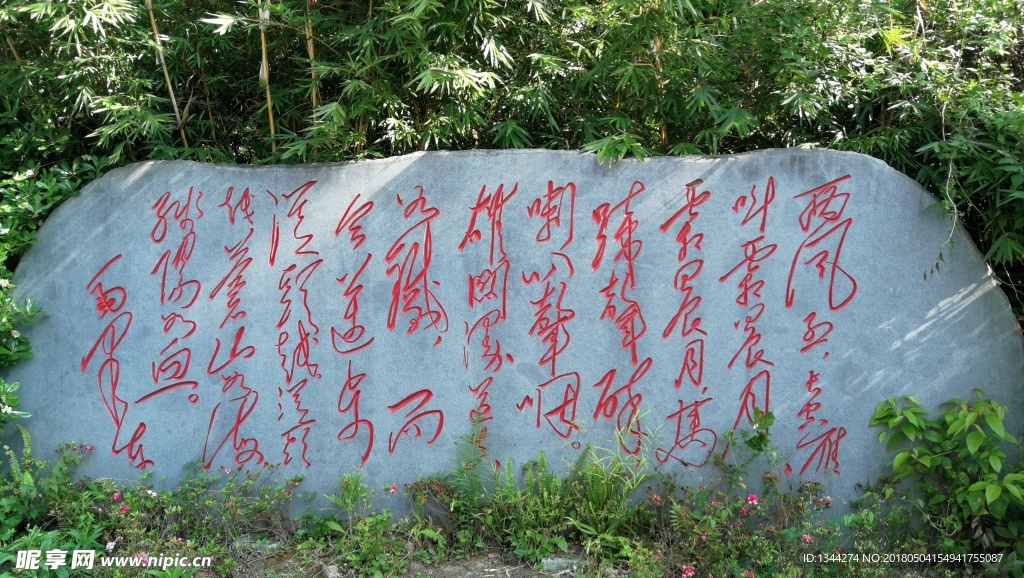 西風烈，長空雁
叫霜晨月。
霜晨月，馬
蹄聲碎
喇叭聲咽。
雄關漫道
如鐵，而
今邁步
從頭越。從頭
越，蒼山如海
殘陽如血。
毛澤東
昵享网 www.nipic.cn
ID:1344274 NO:20180504154941755087